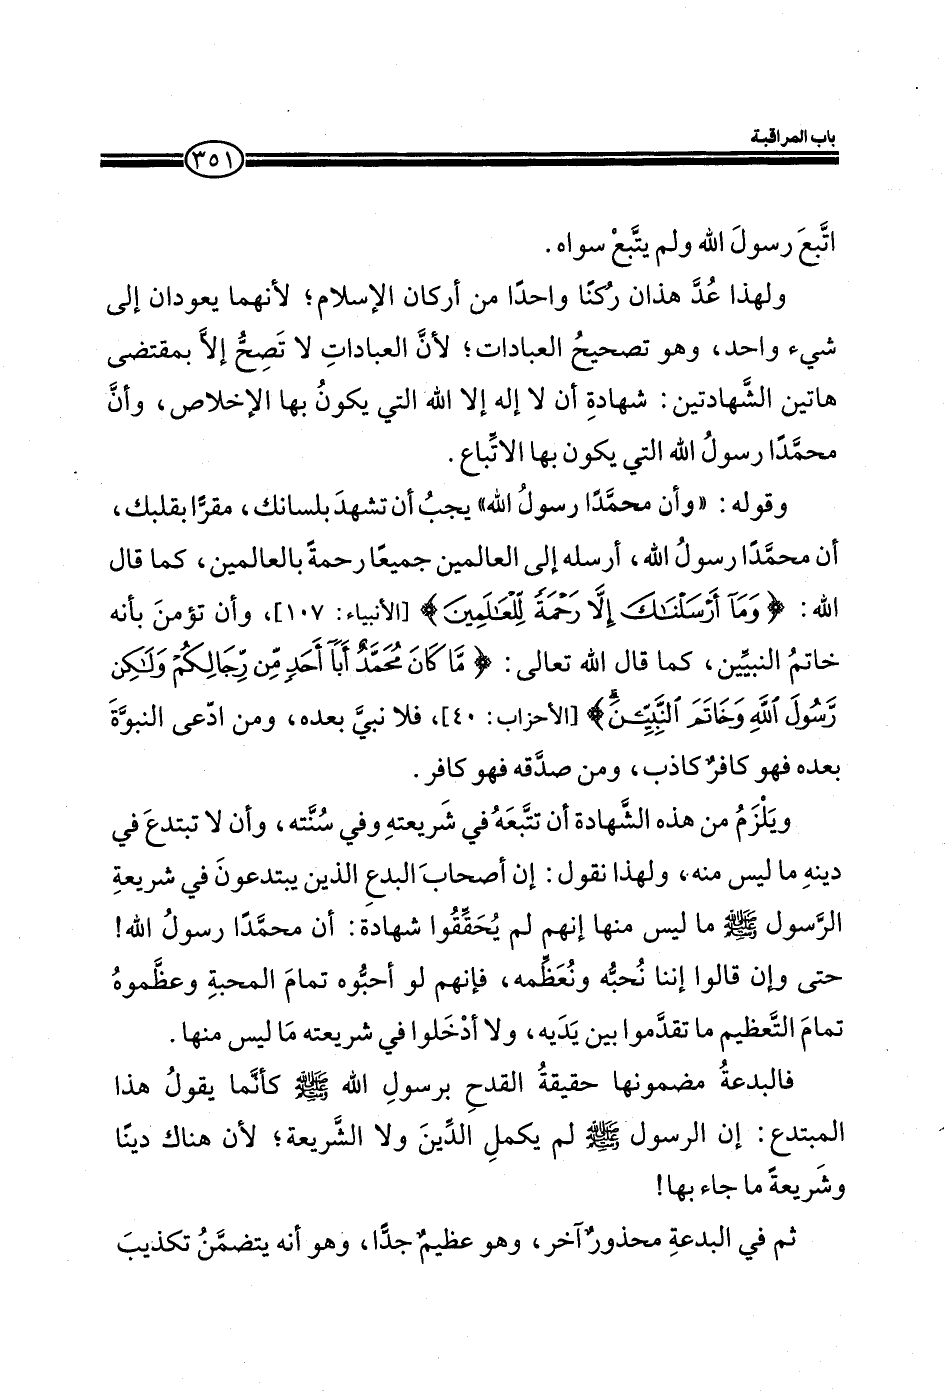 باب المراقبة
٣٥١
اتَّبعَ رسولَ الله ولم يتَّبعْ سواه.
ولهذا عُدَّ هذان رُكنًا واحدًا من أركان الإسلام؛ لأنهما يعودان إلى
شيء واحد، وهو تصحيحُ العبادات؛ لأنَّ العباداتِ لا تَصِحُّ إلاَّ بمقتضى
هاتين الشَّهادتين: شهادةِ أن لا إله إلا الله التي يكونُ بها الإخلاص، وأنَّ
محمَّدًا رسولُ الله التي يكون بها الاتِّباع.
وقوله: «وأن محمَّدًا رسولُ الله» يجبُ أن تشهدَ بلسانك، مقرًّا بقلبك،
أن محمَّدًا رسولُ الله، أرسله إلى العالمين جميعًا رحمةً بالعالمين، كما قال
الله: ﴿وَمَآ أَرْسَلْنَـٰكَ إِلَّا رَحْمَةً لِّلْعَـٰلَمِينَ﴾ [الأنبياء: ١٠٧]، وأن تؤمنَ بأنه
خاتمُ النبيِّين، كما قال الله تعالى: ﴿مَّا كَانَ مُحَمَّدٌ أَبَآ أَحَدٍ مِّن رِّجَالِكُمْ وَلَـٰكِن
رَّسُولَ ٱللَّهِ وَخَاتَمَ ٱلنَّبِيِّـۧنَ ۗ﴾ [الأحزاب: ٤٠]، فلا نبيَّ بعده، ومن ادّعى النبوَّةَ
بعده فهو كافرٌ كاذب، ومن صدَّقه فهو كافر.
ويَلْزَمُ من هذه الشَّهادة أن تتَّبعَهُ في شَريعتهِ وفي سُنَّته، وأن لا تبتدعَ في
دينهِ ما ليس منه، ولهذا نقول: إن أصحابَ البدع الذين يبتدعونَ في شريعةِ
الرَّسول ﷺ ما ليس منها إنهم لم يُحَقِّقُوا شهادة: أن محمَّدًا رسولُ الله!
حتى وإن قالوا إننا نُحبُّه ونُعَظِّمه، فإنهم لو أحبُّوه تمامَ المحبةِ وعظَّموهُ
تمامَ التَّعظيم ما تقدَّموا بين يَدَيه، ولا أدْخَلوا في شريعته مَا ليس منها.
فالبدعةُ مضمونها حقيقةُ القدحِ برسولِ الله ﷺ كأنَّما يقولُ هذا
المبتدع: إن الرسول ﷺ لم يكملِ الدِّينَ ولا الشَّريعة؛ لأن هناك دينًا
وشَريعةً ما جاء بها!
ثم في البدعةِ محذورٌ آخر، وهو عظيمٌ جدًّا، وهو أنه يتضمَّنُ تكذيبَ